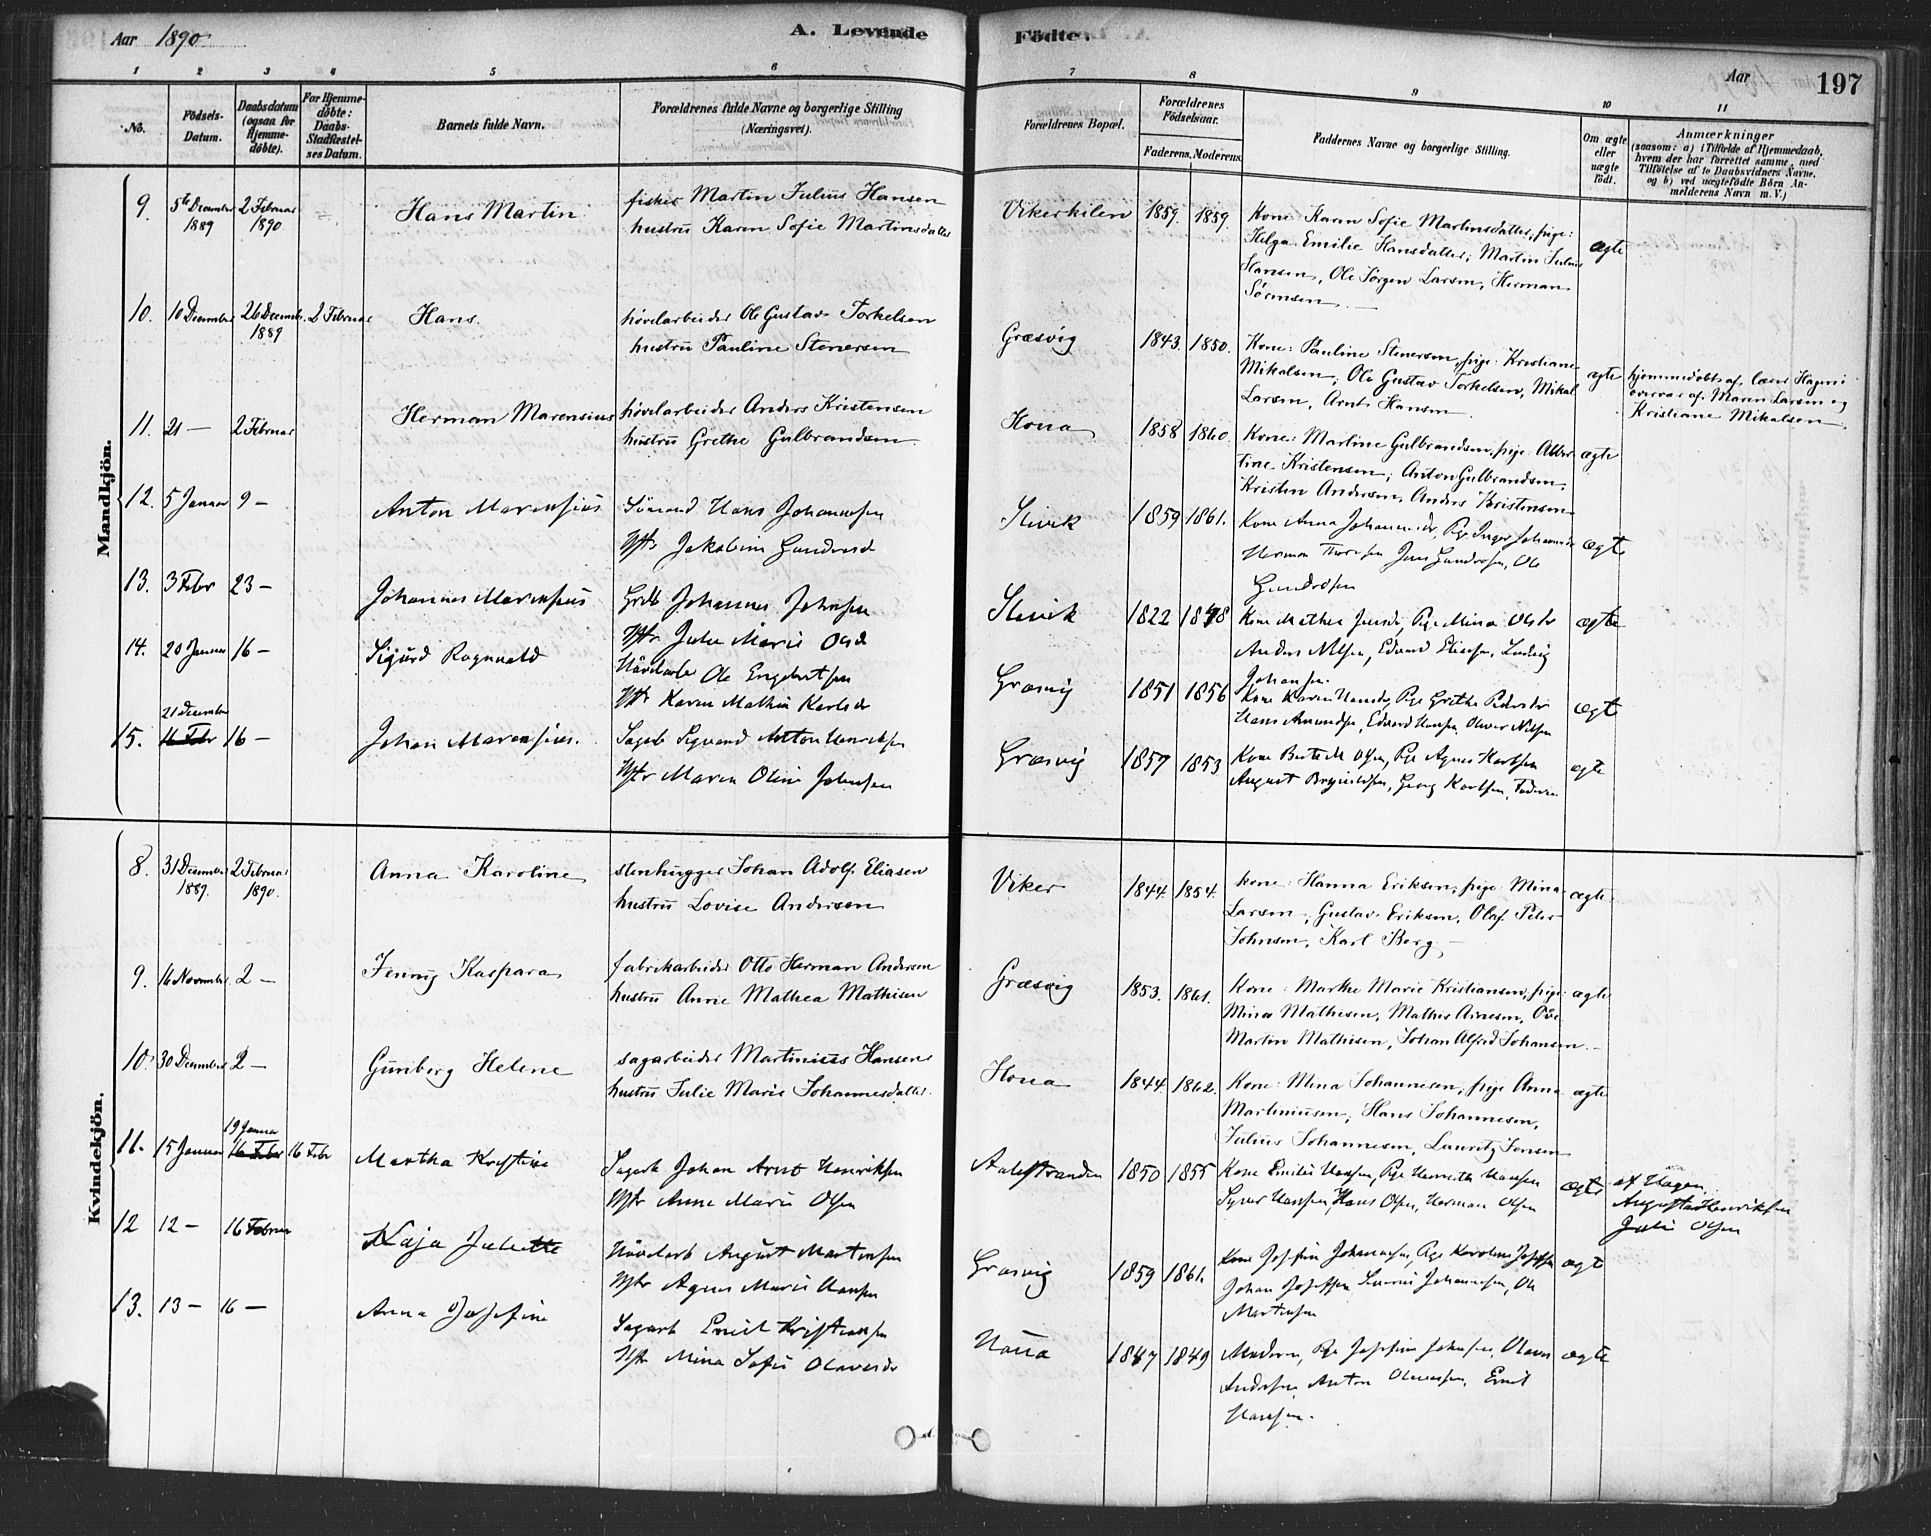 Aar 1890.
A. Levende Födte.
Aar 197
1 2 3 4 5 6 7 8 9 10 11
No.
Födsels-Datum.
Daabsdatum (ogsaa for Hjemme-döbte).
For Hjemme-döbte: Daabs-Stadfæstel-ses Datum.
Barnets fulde Navn.
Forældrenes fulde Navne og borgerlige Stilling (Næringsvei).
Forældrenes Bopæl.
Forældrenes Födselsaar.
Faderens. Moderens.
Faddernes Navne og borgerlige Stilling.
Om ægte eller uægte födt.
Anmærkninger
(saasom: a) i Tilfælde af Hjemmedaab, hvem der har forrettet samme, med Tilföielse af to Daabsvidners Navne, og b) ved uægtefödte Börn Anmelderens Navn m. V.)
Mandkjön.
9. 5te December 1889 2 Februar 1890 Hans Martin
fisker Martin Julius Hansen
hustru Karen Sofie Martinsdatter
Vikerkilen 1859. 1859.
Kone: Karen Sofie Martinsdatter, pige:
Helga Emilie Hansdatter; Martin Julius
Hansen, Ole Jørgen Larsen, Herman
Sørensen
ægte
10. 10 December 26 December 1889 2 Februar Hans.
høvlarbeider Ole Gustav Torkelsen
hustru Pauline Stenersen
Græsvig 1843. 1850.
Kone: Pauline Stenersen, pige: Kristiane
Mikalsen; Ole Gustav Torkelsen, Mikal
Larsen, Arnt Hansen
ægte
hjemmedøbt af lærer Hagen i
overvær af Maren Larsen og
Kristiane Mikalsen
11. 21 — 2 Februar Herman Marensius
høvelarbeider Anders Kristensen
hustru Grethe Gulbrandsen
Houa 1858 1860.
Kone: Martine Gulbrandsen, pige: Alber
tine Kristensen; Anton Gulbrandsen,
Kristen Andersen, Anders Kristensen
ægte
12. 5 Januar 9 — Anton Marensius
Sömand Hans Johannesen
Hstr Jakobine
Slevik 1859 1861.
Kone Anna Pige Inger
Herman Jens Ole
ægte
13. 3 Febr 23 — Johannes Marensius
Johannes Johnsen
Hstr Julie Marie Olsd
Slevik 1822 1848
Kone Mathea Pige Mina
Anders Nilsen, Edvard Eliasen, Ludvig
Johansen.
ægte
14. 20 Januar 16 — Sigurd Ragnvald
Hövlarb Ole Engebretsen
Hstr Karen Mathea Karlsd
Græsvig 1851 1856
Kone Karen Pige Grethe
Hans Amundsen, Edvard Hansen, Oliver Nilsen
ægte
15. 21 December 16 Febr 16 — Johan Marensius.
Sagarb Sigvand Anton Henriksen
Hstr Maren Oline Johnsen
Græsvig 1857 1853
Kone Berte M Olsen, Pige Agnes Karlsen
August Georg Karlsen, Faderen
ægte
Kvindekjön.
8. 31 December 1889. 2 Februar 1890. Anna Karoline
stenhugger Johan Adolf Eliasen
hustru Lovise Andersen
Viker 1844. 1854.
kone: Hanna Eriksen, pige: Mina
Larsen, Gustav Eriksen, Olaf Peter
Johnsen, Karl Berg,
ægte
9. 16 November 2 — Jenny Kaspara
fabrikarbeider Otto Herman Andersen
hustru Anne Mathea Mathisen
Græsvig 1853. 1861.
Kone: Marthe Marie Kristiansen, pige:
Mina Mathisen, Mathis Arnesen, Ove
Martin Mathisen, Johan Alfred Johansen.
ægte
10. 30 December 2 — Gunborg Helene
sagarbeider Martinius Hansen
hustru Julie Marie Johannesdatter.
Houa 1844. 1862.
Kone: Mina Johannesen, pige Anna
Martiniusen, Hans Johannesen,
Julius Johannesen, Lauritz Jensen
ægte
11. 15 Januar 19 Januar 16 Febr 16 Febr Martha Kristine
Sagarb Johan Arnt Henriksen
Hstr Anne Marie Olsen
Aalestranden 1850 1855
Kone Emilie Hansen, Pige Henriette Hansen
Syver Hansen Hans Olsen, Herman Olsen
ægte
af Hagen
Augusta Henriksen
Julie Olsen
12 12 — 16 Februar Kaja Juliette
Hövlarb August Martinsen
Hstr Agnes Marie Hansen
Græsvig 1859 1861.
Kone Josefine Johannesen, Pige Karoline Josefsen
Johan Josefsen Johannesen, Ole
Martinsen
ægt
13. 13 — 16 — Anna Josefine
Sagarb Emil Kristiansen
Hstr Mina Sofie Olavesdr
Houa 1847 1849
Moderen, Pige Josefine Johnsen, Olaves
Andersen, Anton Olavesen, Emil
Hansen.
ægte